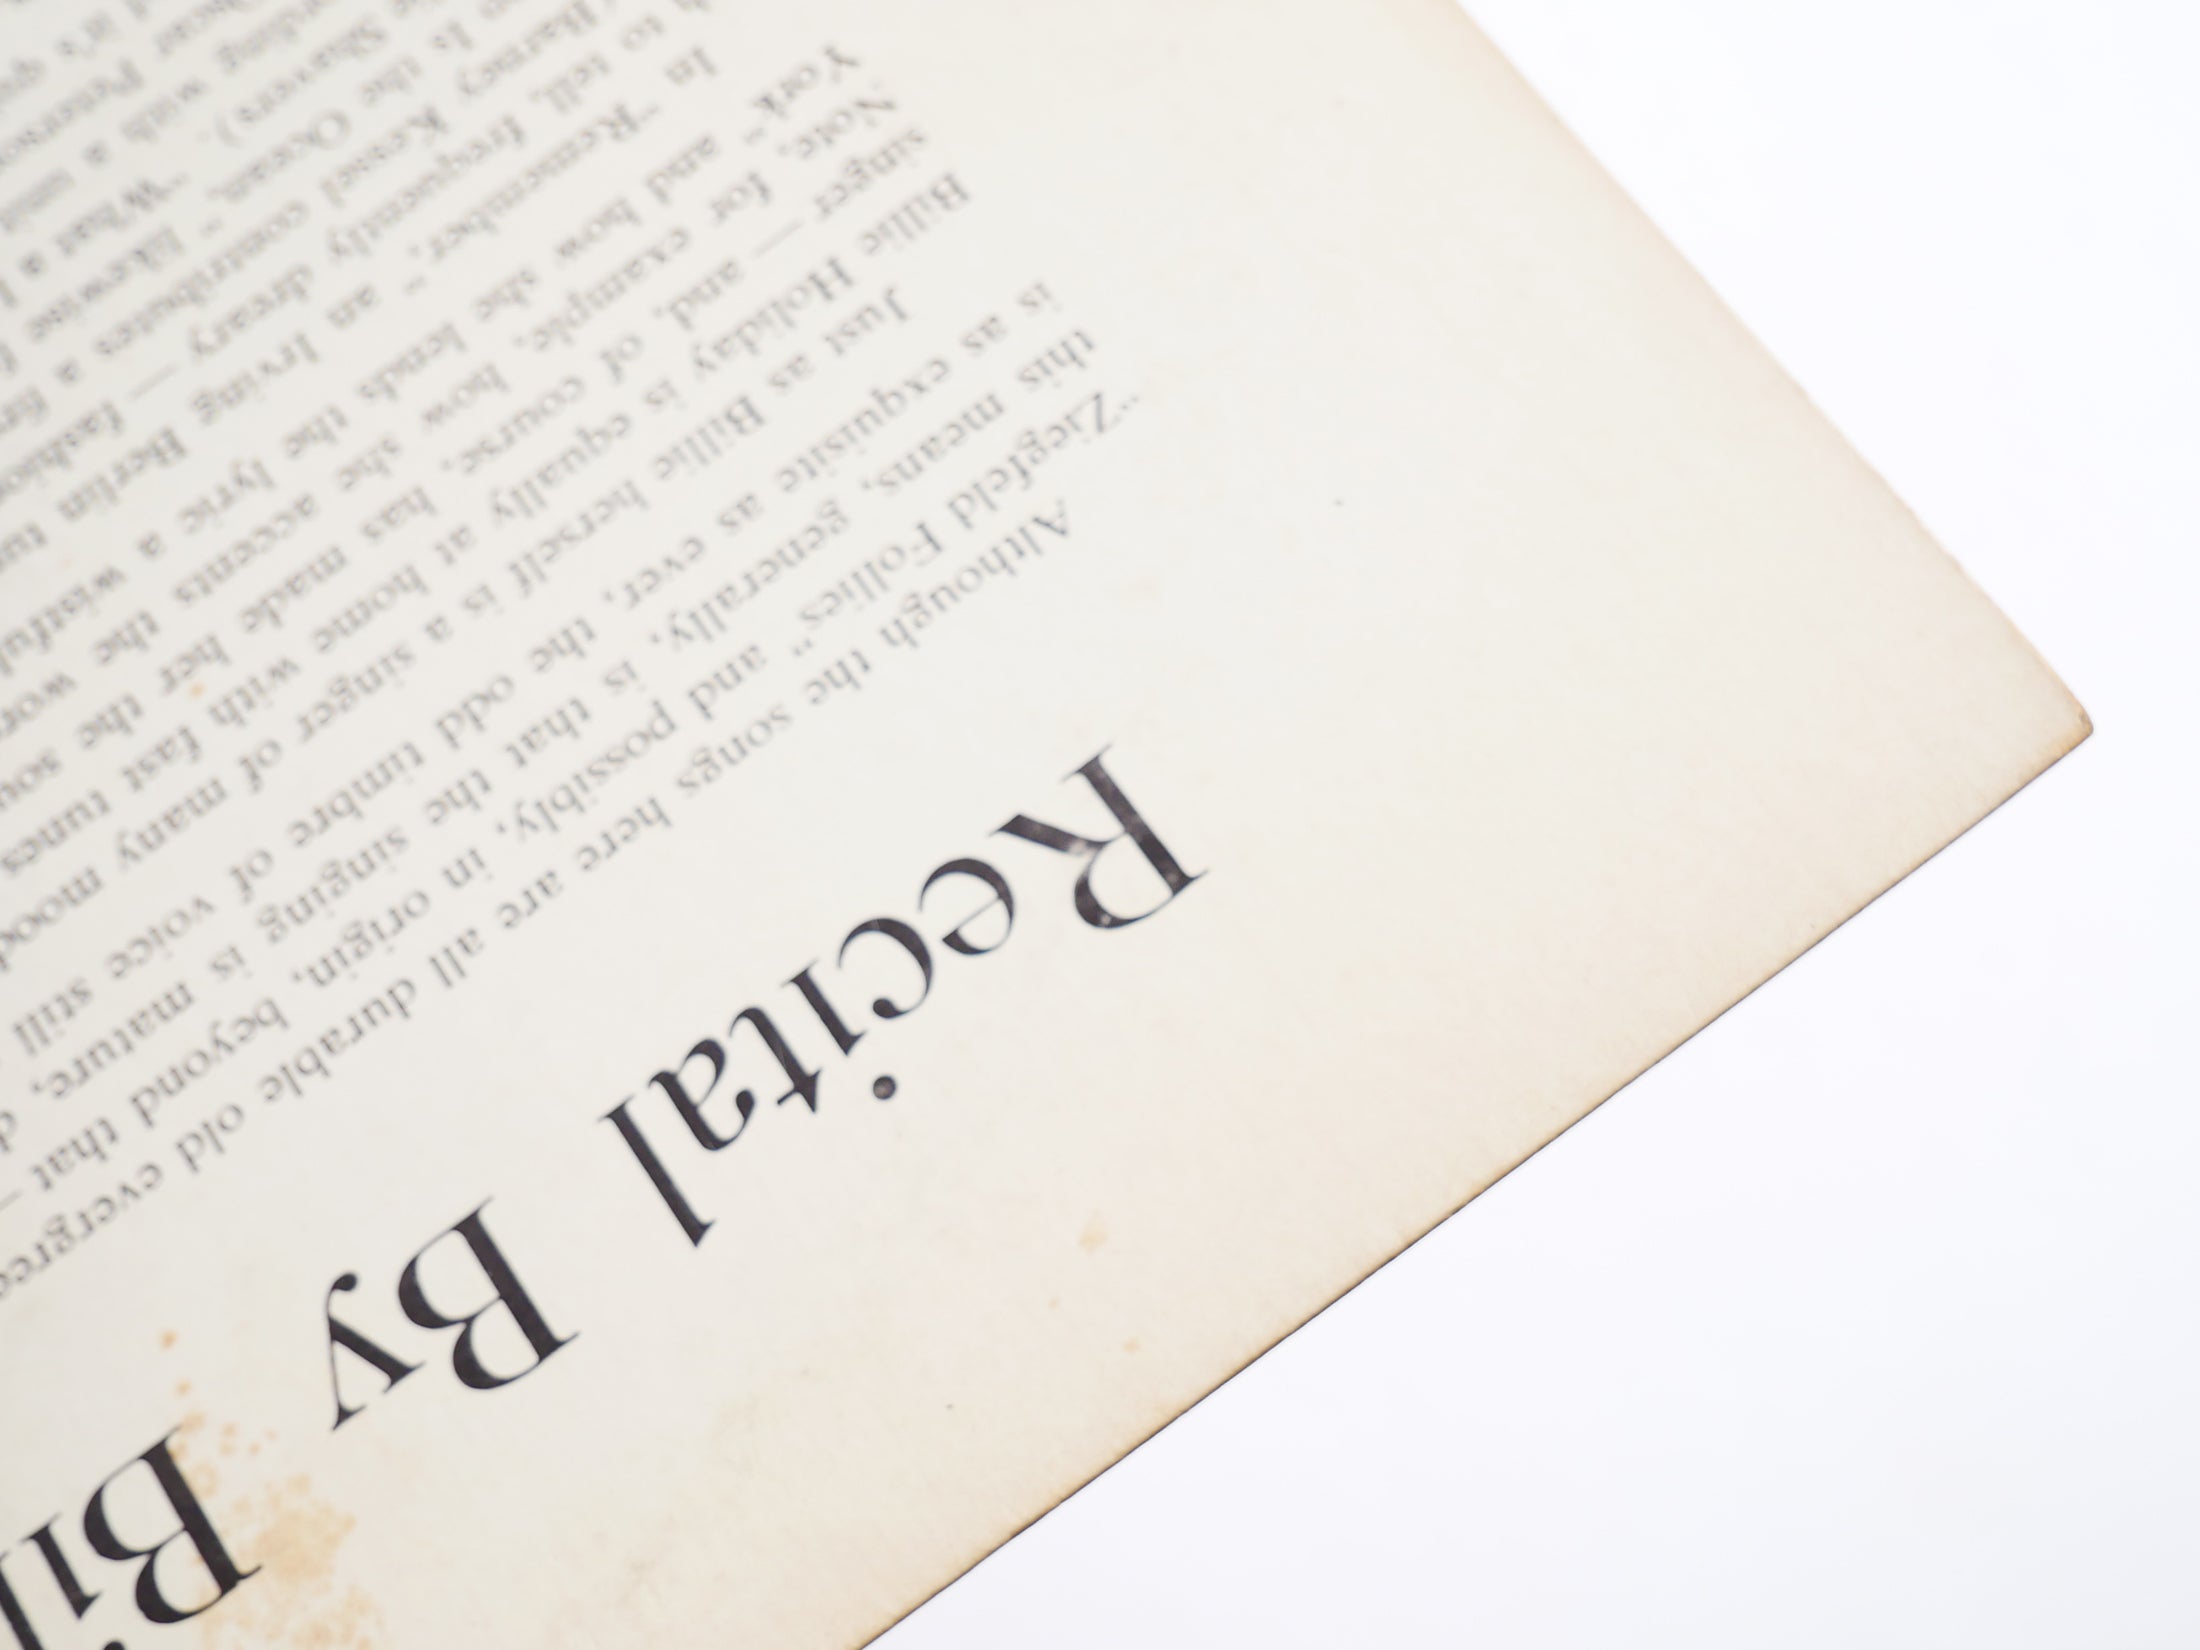 Recital By Bil
Although the songs here are all durable old evergree
"Ziegfeld Follies" and possibly, in origin, beyond that —
this means, generally, is that the singing is mature, d
is as exquisite as ever, the odd timbre of voice still
Just as Billie herself is a singer of many mood
Billie Holiday is equally at home with fast tunes
singer — and, of course, has made her the sou
Note, for example, how she accents the wor
York" and how she lends the lyric a wistful
In "Remember," an Irving Berlin tu
to tell, frequently dreary — fashion
Barney Kessel contributes a fir
Is the Ocean," likewise
Shavers). "What a
with a
Peterson
it's